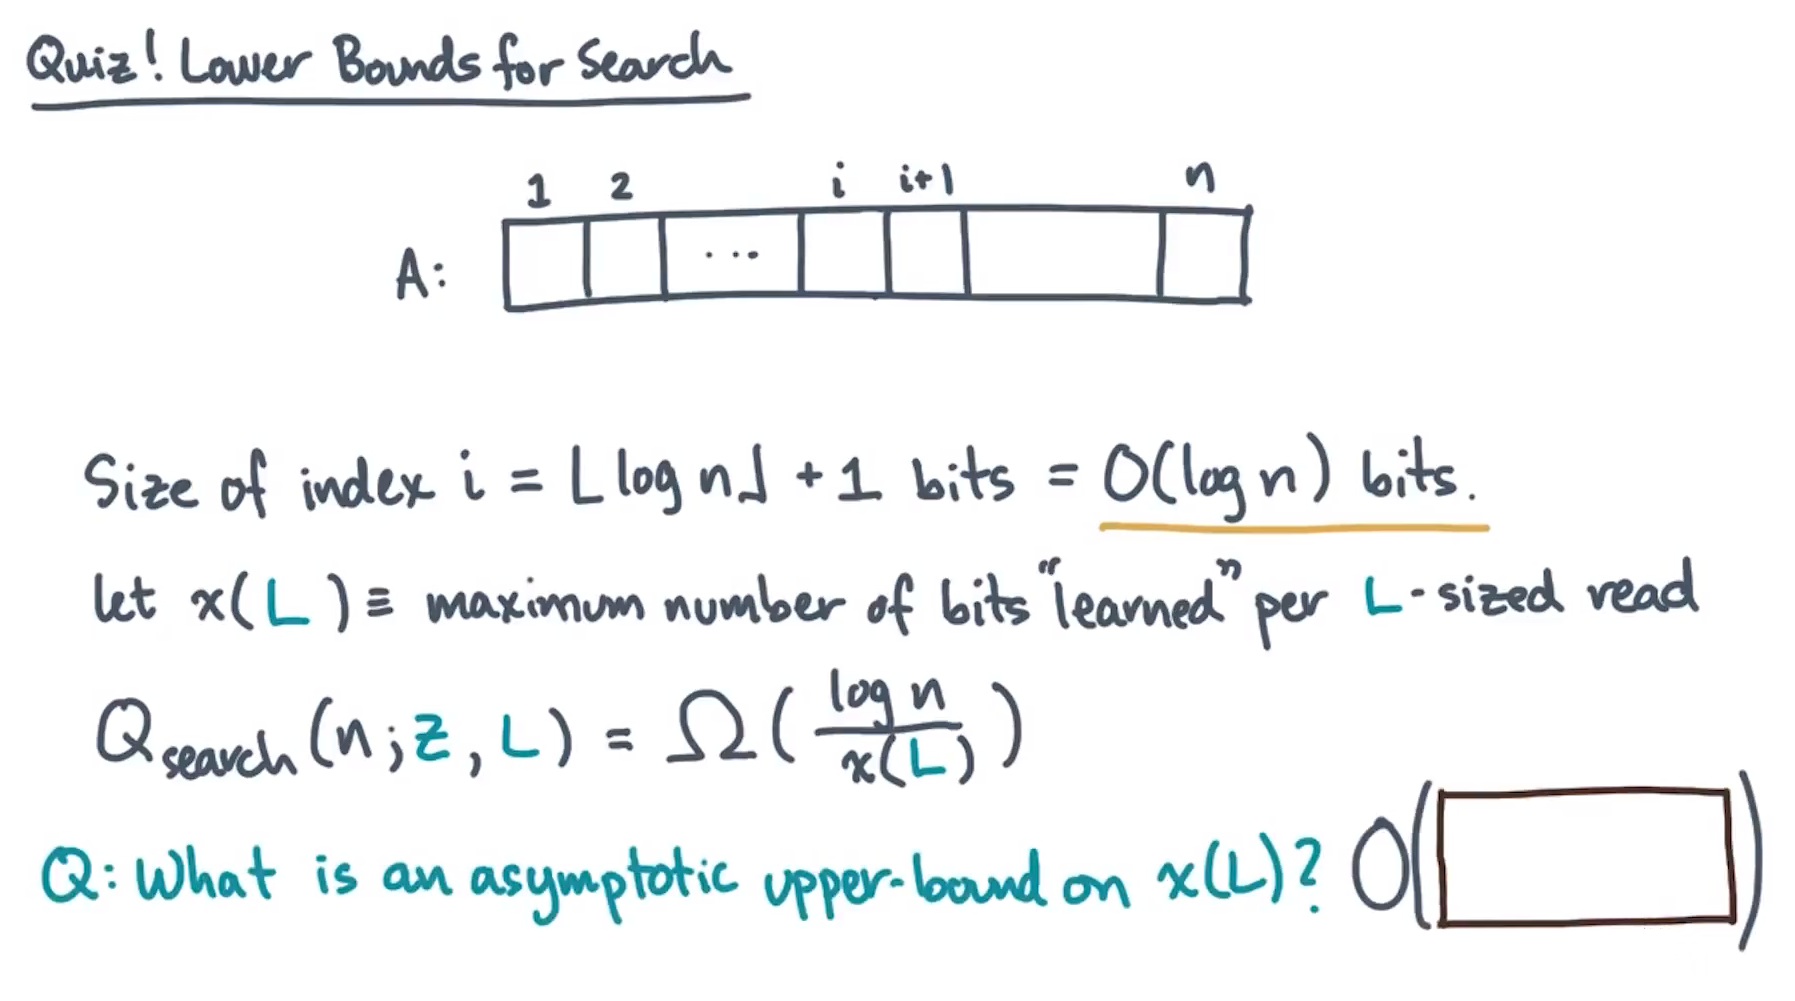 Quiz! Lower Bounds for Search
1 2 i i+1 n
A: ...
Size of index i = ⌊log n⌋ + 1 bits = O(log n) bits.
let x(L) ≡ maximum number of bits "learned" per L-sized read
Qsearch(n; Z, L) = Ω(log n / x(L))
Q: What is an asymptotic upper-bound on x(L)? O( )